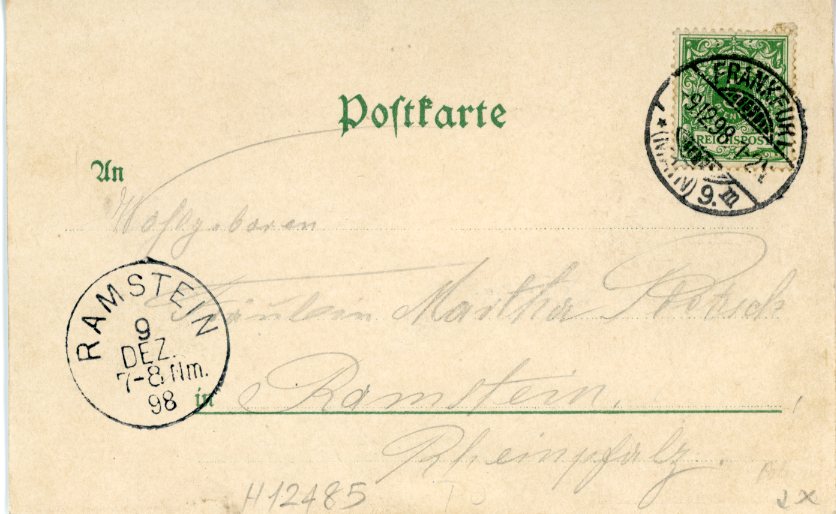 Postkarte
An
FRANKFURT
9/12 98 1-2 N.
(MAIN) 9. m
REICHSPOST
Wohlgeboren
Fräulein Martha
RAMSTEIN
9
DEZ.
7-8 Nm.
98
in Ramstein.
Rheinpfalz.
H12485